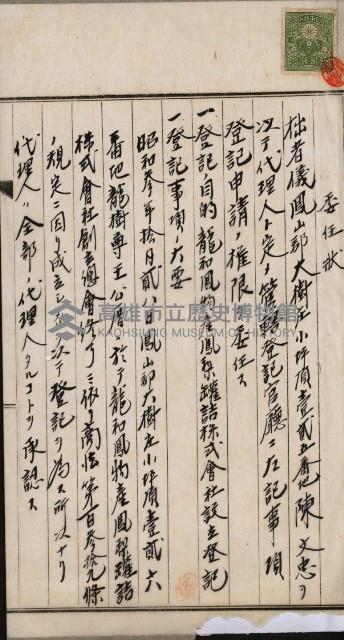 委任状
拙者儀鳳山郡大樹庄小坪頂壹貳五番地陳文忠ヲ
以テ代理人ト定メ管轄登記官廳ニ左記事項
登記申請ノ權限ヲ委任ス
一登記目的 龍和鳳物産鳳梨罐詰株式會社設立登記
一登記事項ノ大要
昭和參年拾月貳 鳳山郡大樹庄小坪頂壹貳六
番地龍樹尊王公厝ニ於テ龍和鳳物産鳳梨罐詰
株式會社創立總會終了ニ依リ商法第百參拾九條
ノ規定ニ因リ成立シ以テ登記ヲ為ス所以ナリ
代理人ハ全部ノ代理人タルコトヲ承認ス
高雄市立歷史博物館
KAOHSIUNG MUSEUM OF HISTORY